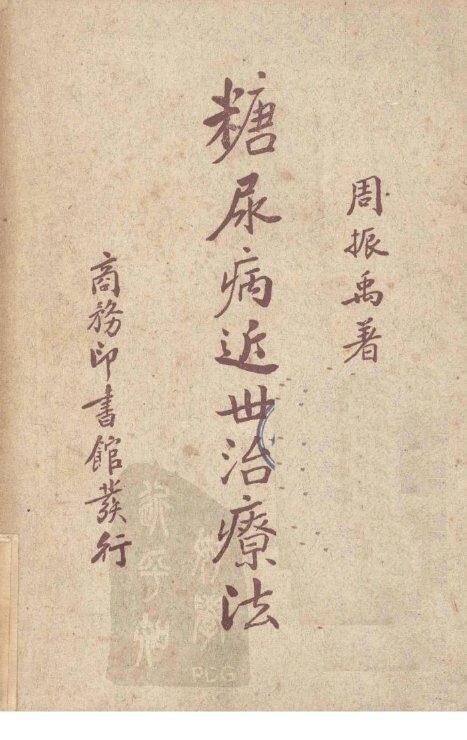 周振禹著
糖尿病近世治療法
商務印書館發行
PCG